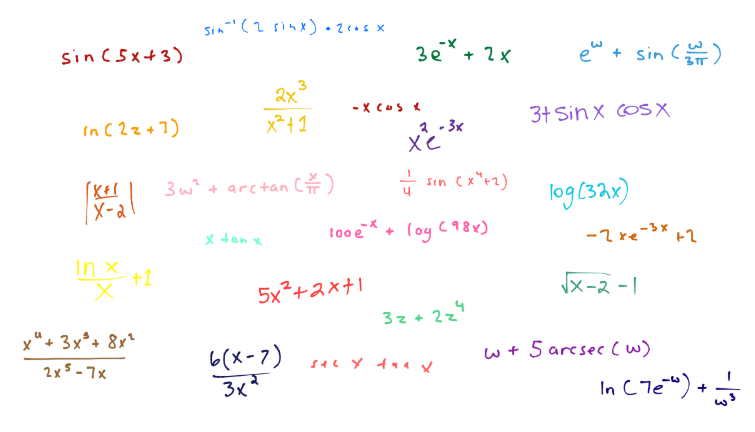 sin⁻¹(2 sinx) · 2cos x
sin(5x+3)
3e^-x + 2x
e^ω + sin(ω/3π)
2x³/x²+1
-x cos x
3+sinx cosx
ln(2z+7)
x²e^-3x
|x+1/x-2|
3ω² + arctan(x/π)
1/4 sin(x⁴+2)
log(32x)
x tan x
100e^-x + log(98x)
-2xe^-3x +2
ln x/x +1
5x²+2x+1
√x-2 -1
3z + 2z⁴
x⁴+3x³+8x²/2x⁵-7x
6(x-7)/3x²
sec x tan x
ω + 5 arcsec(ω)
ln(7e^-ω) + 1/ω³